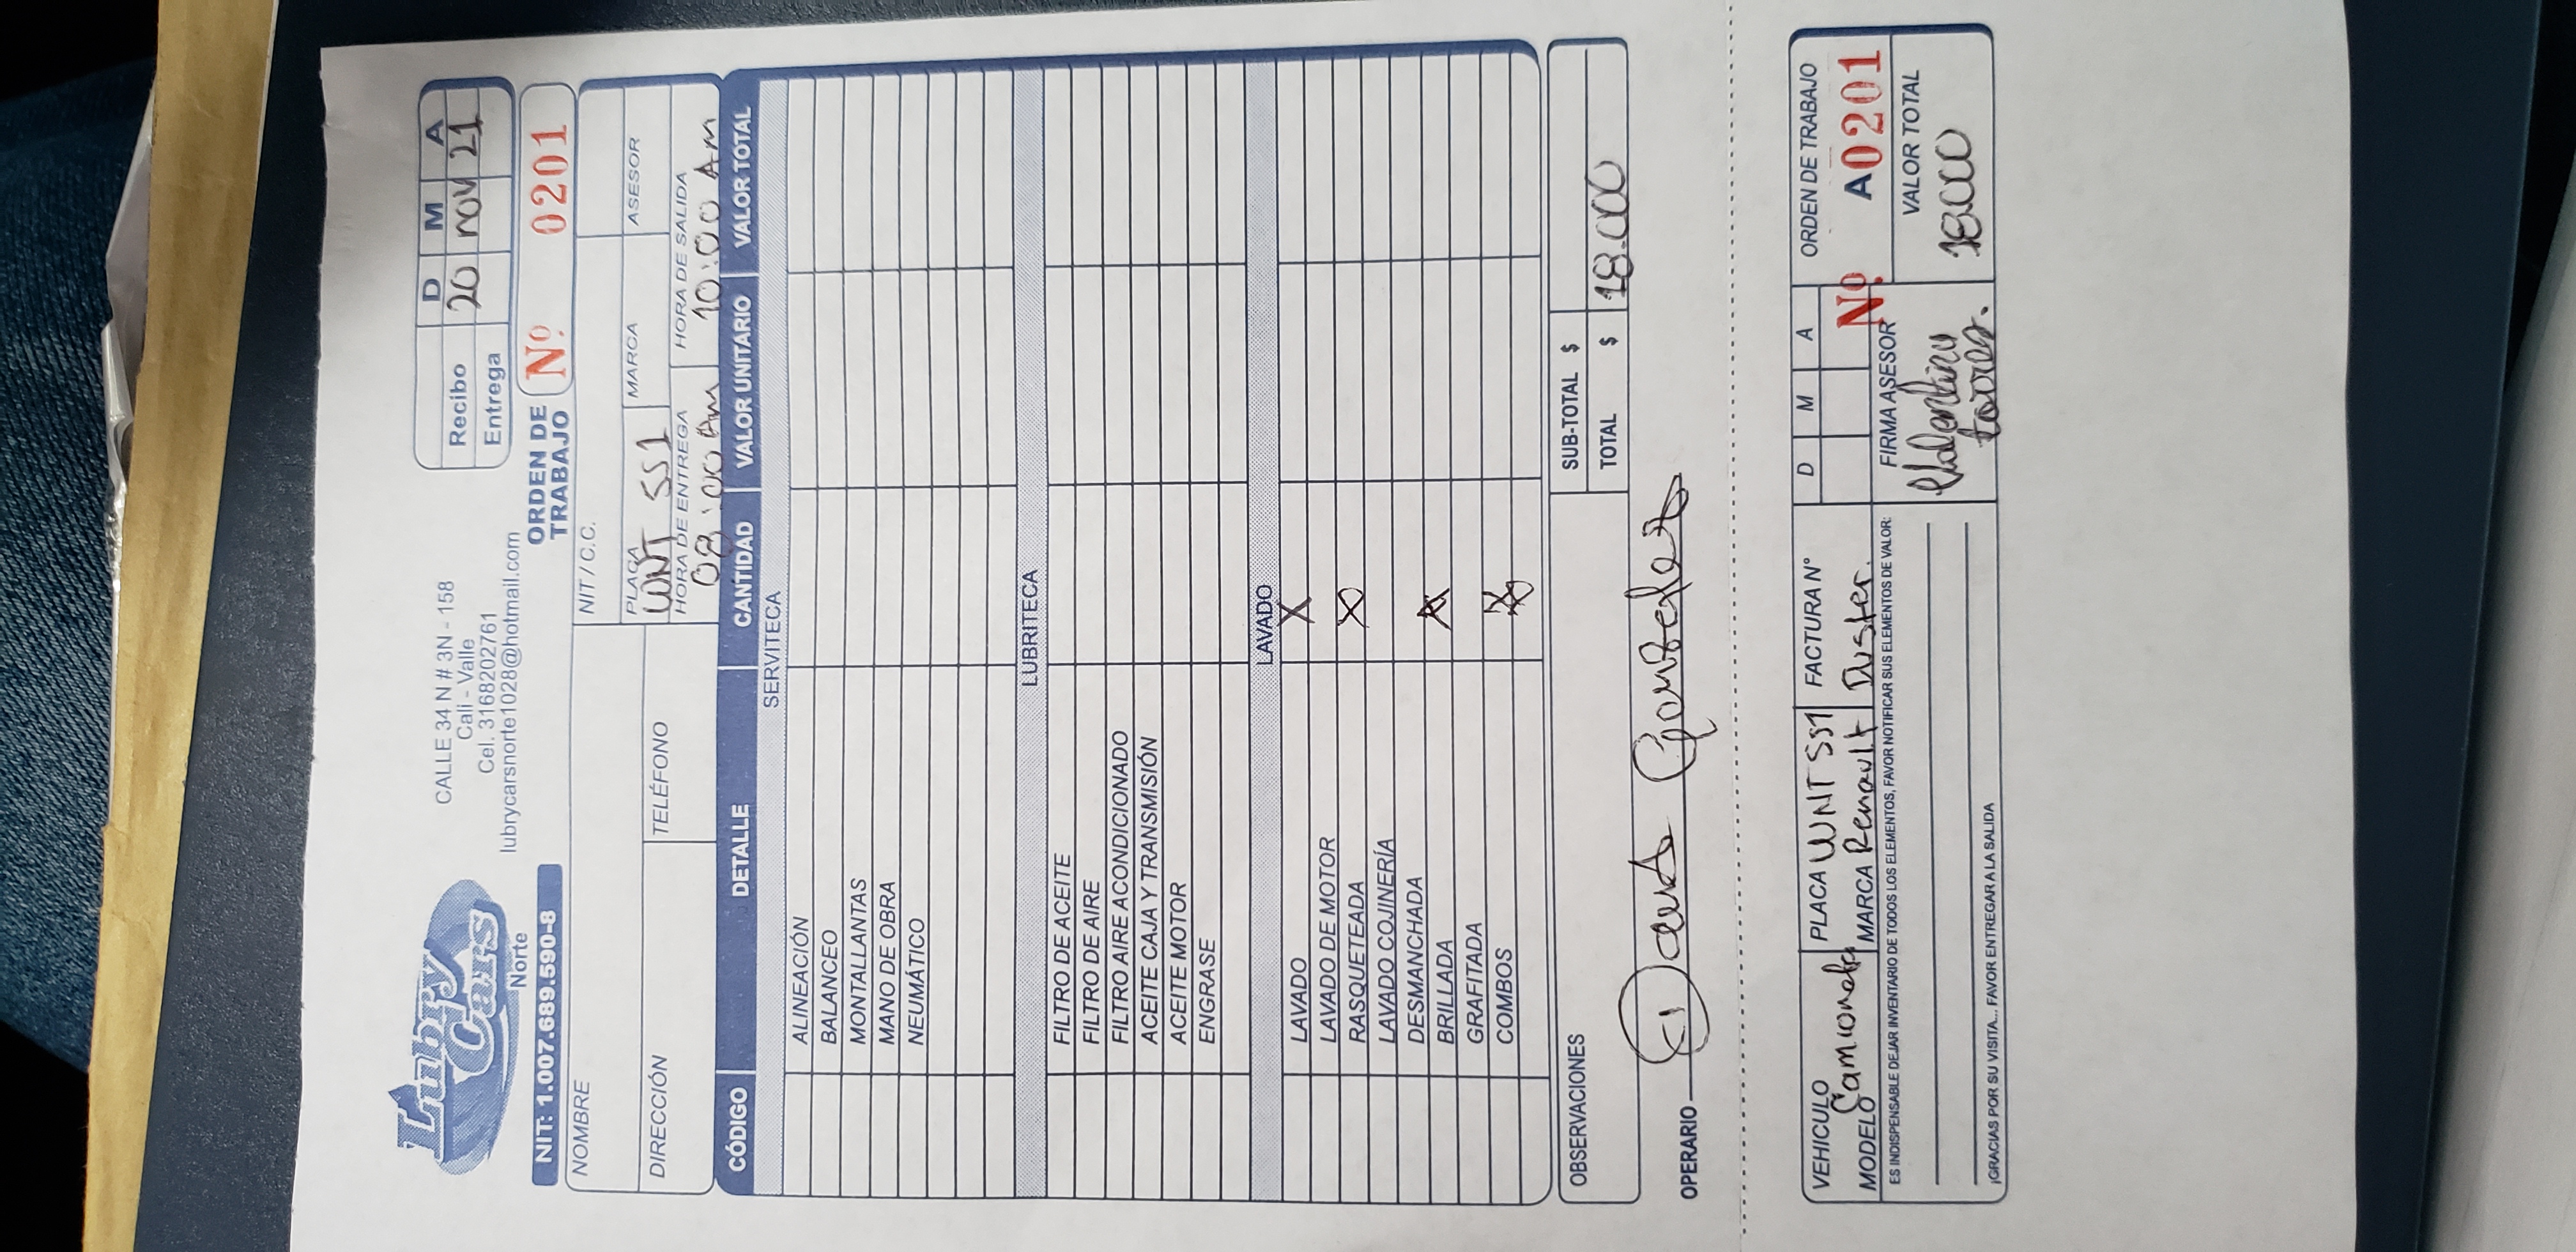 Lubry
Cars
Norte
NIT: 1.007.689.590-8
CALLE 34 N # 3N - 158
Cali - Valle
Cel. 3168202761
lubrycarsnorte1028@hotmail.com
D M A
Recibo 20 nov 21
Entrega
ORDEN DE TRABAJO Nº. 0201
NOMBRE NIT / C.C.
DIRECCIÓN TELÉFONO
PLACA WNT 551 MARCA ASESOR
HORA DE ENTREGA 08:00 Am HORA DE SALIDA 10:00 Am
CÓDIGO DETALLE CANTIDAD VALOR UNITARIO VALOR TOTAL
SERVITECA
ALINEACIÓN
BALANCEO
MONTALLANTAS
MANO DE OBRA
NEUMÁTICO
LUBRITECA
FILTRO DE ACEITE
FILTRO DE AIRE
FILTRO AIRE ACONDICIONADO
ACEITE CAJA Y TRANSMISIÓN
ACEITE MOTOR
ENGRASE
LAVADO
LAVADO X
LAVADO DE MOTOR
RASQUETEADA X
LAVADO COJINERÍA
DESMANCHADA
BRILLADA X
GRAFITADA
COMBOS X
OBSERVACIONES
SUB-TOTAL $
TOTAL $ 18.000
OPERARIO
VEHICULO Camioneta PLACA WNT 551 FACTURA Nº D M A ORDEN DE TRABAJO
MODELO MARCA Renault Duster. Nº. A0201
ES INDISPENSABLE DEJAR INVENTARIO DE TODOS LOS ELEMENTOS, FAVOR NOTIFICAR SUS ELEMENTOS DE VALOR:
FIRMA ASESOR Valentina torres.
VALOR TOTAL 18000
¡GRACIAS POR SU VISITA... FAVOR ENTREGAR A LA SALIDA